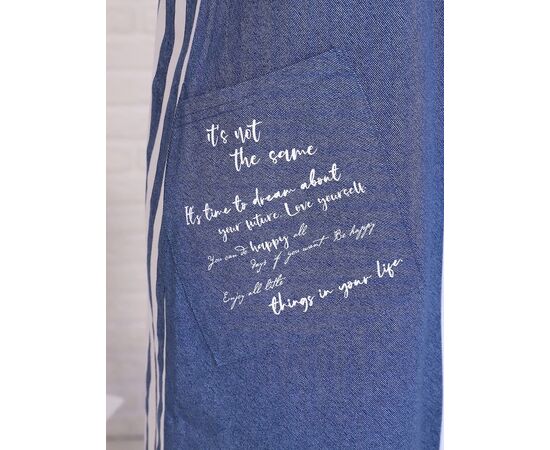 it's not
the same
It's time to dream about
your future. Love yourself.
You can do happy all
days if you want Be happy
Enjoy all little
things in your life.